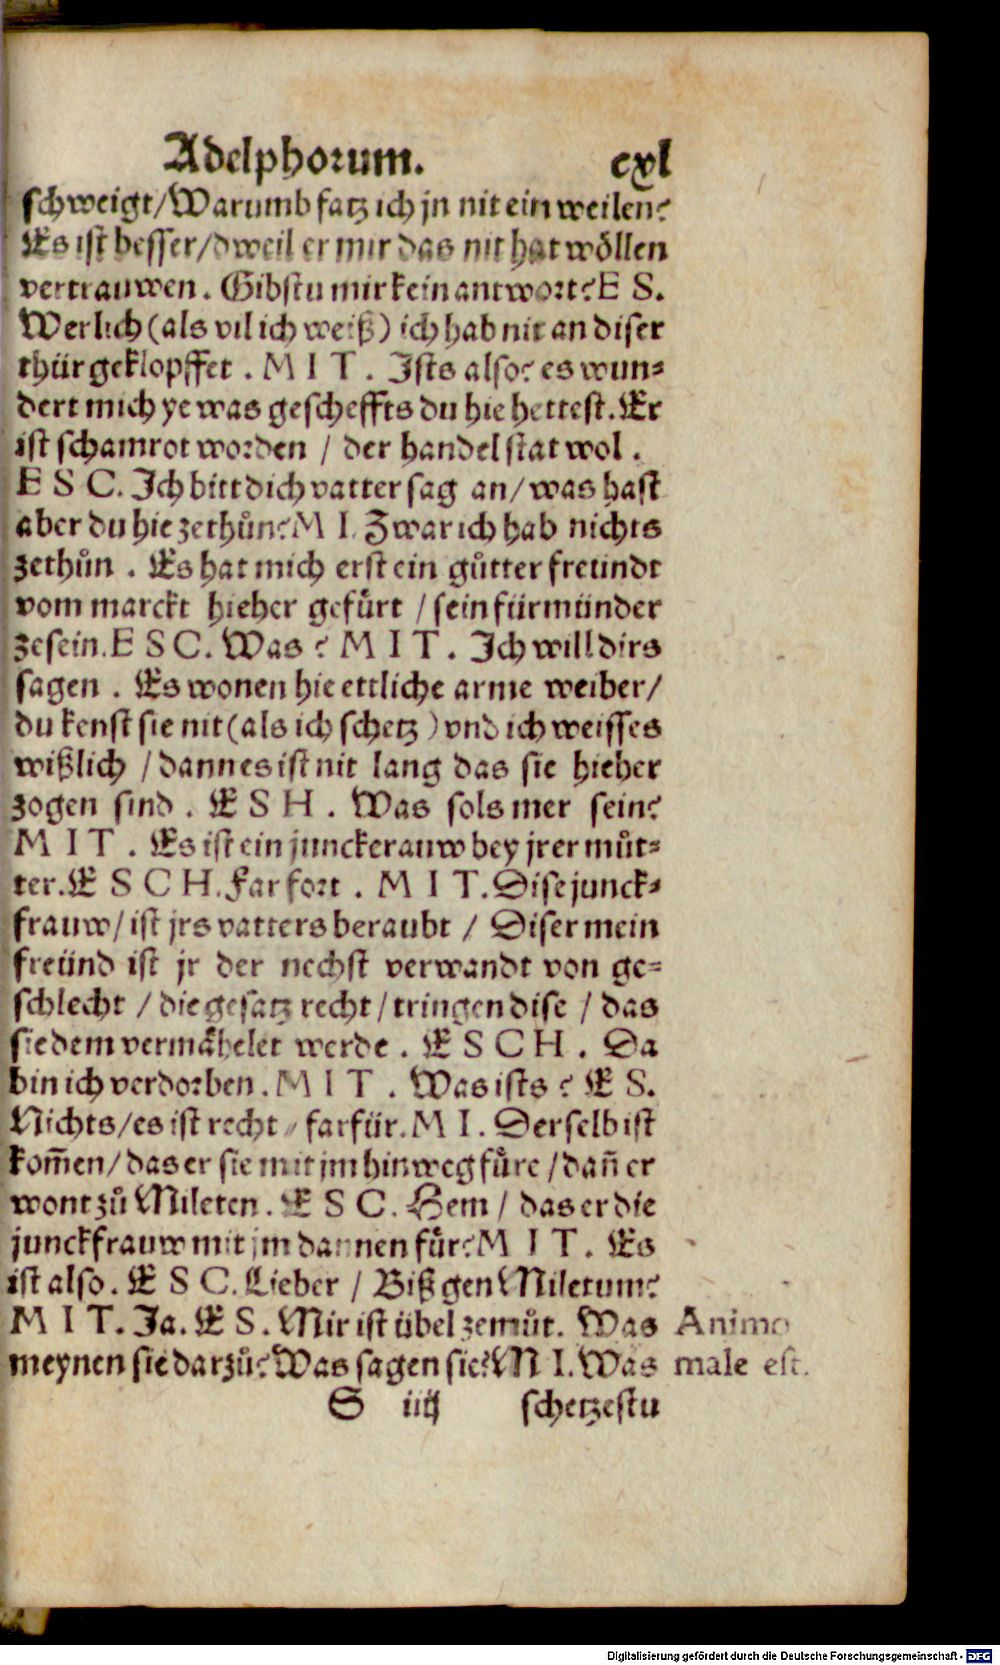 Adelphorum. cxl
schweigt/Warumb fatz ich jn nit ein weilen?
Es ist besser/dweil er mir das nit hat wöllen
vertrauwen. Gibstu mir kein antwort? E S.
Werlich (als vil ich weiß) ich hab nit an diser
thür geklopffet. M I T. Ists also? es wun⸗
dert mich ye was gescheffts du hie hettest. Er
ist schamrot worden / der handel stat wol.
E S C. Ich bitt dich vatter sag an/ was hast
aber du hie zethuͦn? M I. Zwar ich hab nichts
zethuͦn. Es hat mich erst ein guͦtter freündt
vom marckt hieher gefuͤrt / sein fürmünder
zesein. E S C. Was? M I T. Ich will dirs
sagen. Es wonen hie ettliche arme weiber/
du kenst sie nit (als ich schetz) vnd ich weisses
wißlich / dann es ist nit lang das sie hieher
zogen sind. E S H. Was sols mer sein?
M I T. Es ist ein junckerauw bey jrer muͦt⸗
ter. E S C H. Far fort. M I T. Dise junck⸗
frauw/ ist jrs vatters beraubt / Diser mein
freünd ist jr der nechst verwandt von ge⸗
schlecht / die gesatz recht / tringen dise / das
sie dem vermähelet werde. E S C H. Da
bin ich verdorben. M I T. Was ists? E S.
Nichts/es ist recht / farfür. M I. Derselb ist
kom̃en/ das er sie mit jm hinweg fuͤre / dañ er
wont zuͦ Mileten. E S C. Hem / das er die
junckfrauw mit jm dannen fuͤr? M I T. Es
ist also. E S C. Lieber / Biß gen Miletum?
M I T. Ja. E S. Mir ist übel zemuͦt. Was
meynen sie darzuͦ? Was sagen sie? M I. Was
Animo
male est.
S iiij schetzestu
Digitalisierung gefördert durch die Deutsche Forschungsgemeinschaft - DFG